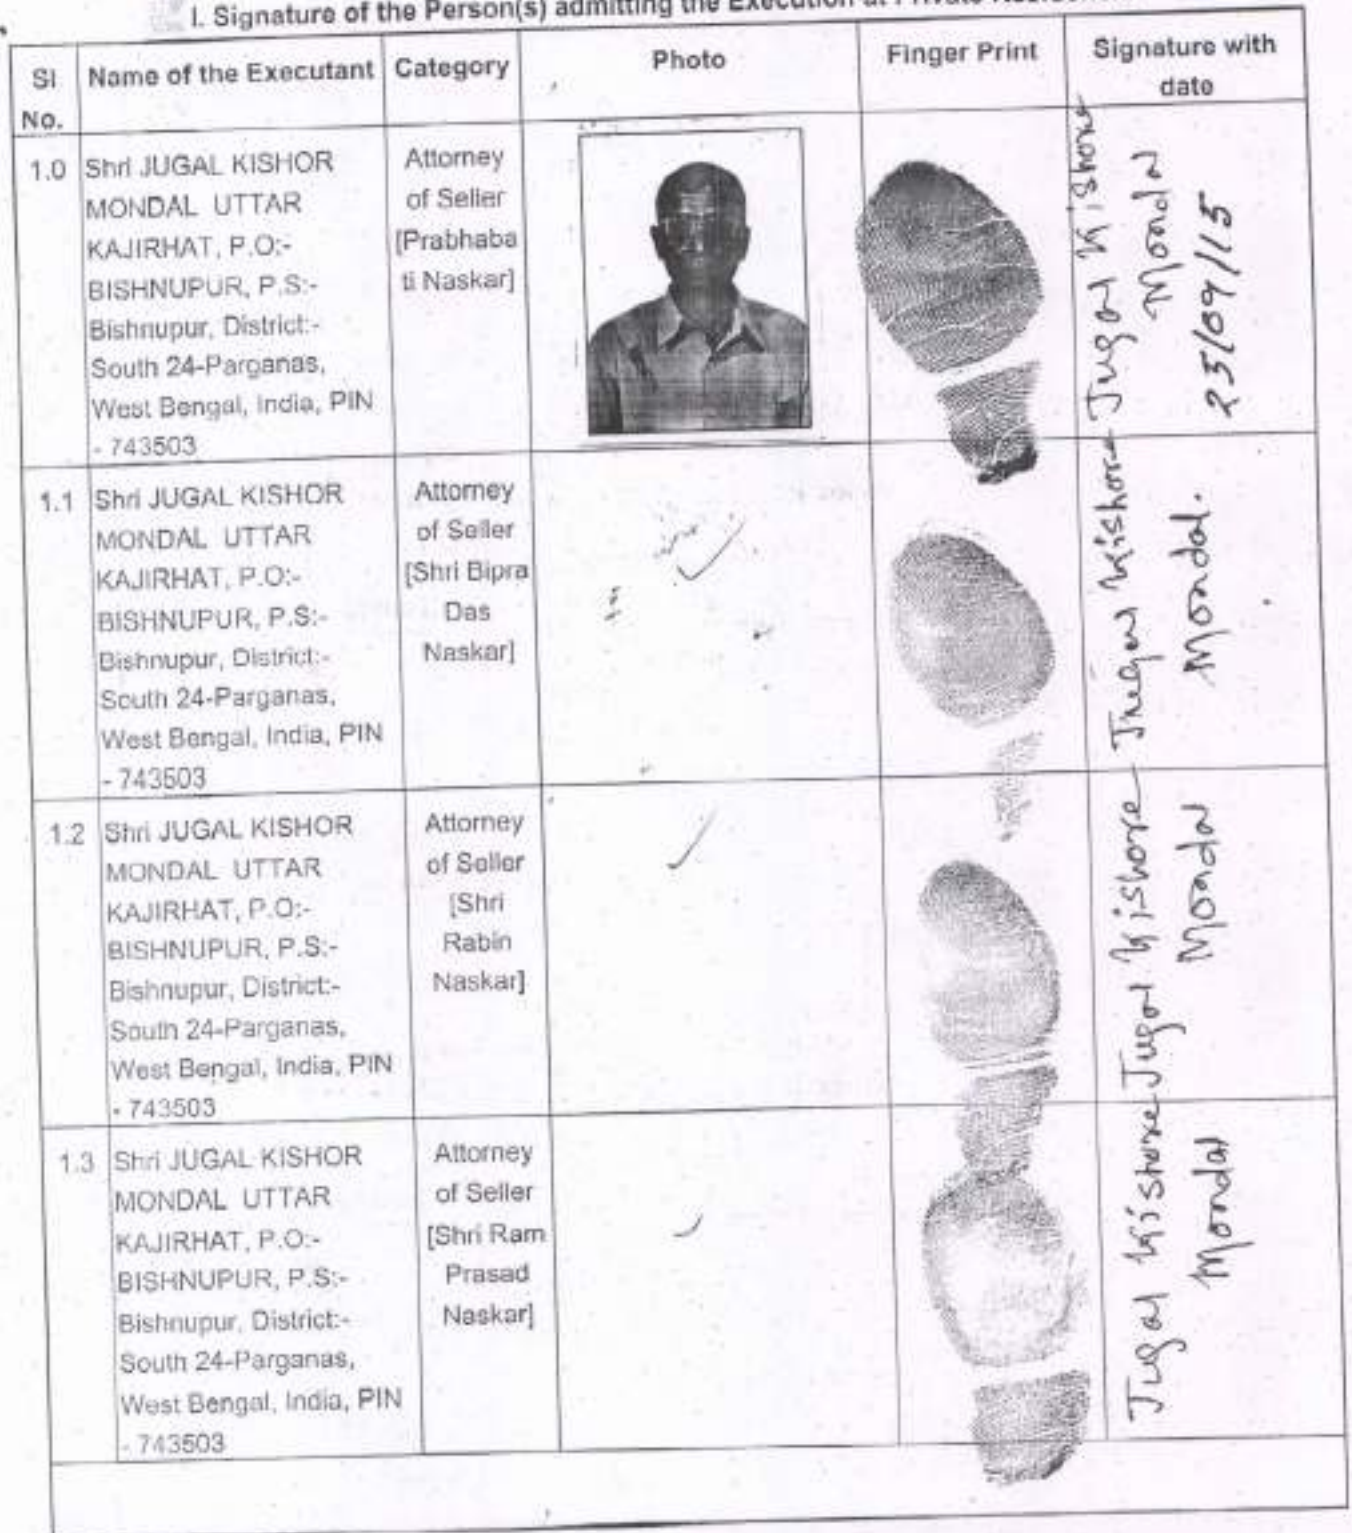 I. Signature of the Person(s) admitting the Execution at Private
Sl No.
Name of the Executant
Category
Photo
Finger Print
Signature with date
1.0
Shri JUGAL KISHOR
MONDAL UTTAR
KAJIRHAT, P.O:-
BISHNUPUR, P.S:-
Bishnupur, District:-
South 24-Parganas,
West Bengal, India, PIN
- 743503
Attorney
of Seller
[Prabhaba
ti Naskar]
Jugal Kishore
Mondal
23/09/15
1.1
Shri JUGAL KISHOR
MONDAL UTTAR
KAJIRHAT, P.O:-
BISHNUPUR, P.S:-
Bishnupur, District:-
South 24-Parganas,
West Bengal, India, PIN
- 743503
Attorney
of Seller
[Shri Bipra
Das
Naskar]
Jugal Kishore
Mondal.
1.2
Shri JUGAL KISHOR
MONDAL UTTAR
KAJIRHAT, P.O:-
BISHNUPUR, P.S:-
Bishnupur, District:-
South 24-Parganas,
West Bengal, India, PIN
- 743503
Attorney
of Seller
[Shri
Rabin
Naskar]
Jugal Kishore
Mondal
1.3
Shri JUGAL KISHOR
MONDAL UTTAR
KAJIRHAT, P.O:-
BISHNUPUR, P.S:-
Bishnupur, District:-
South 24-Parganas,
West Bengal, India, PIN
- 743503
Attorney
of Seller
[Shri Ram
Prasad
Naskar]
Jugal Kishore
Mondal